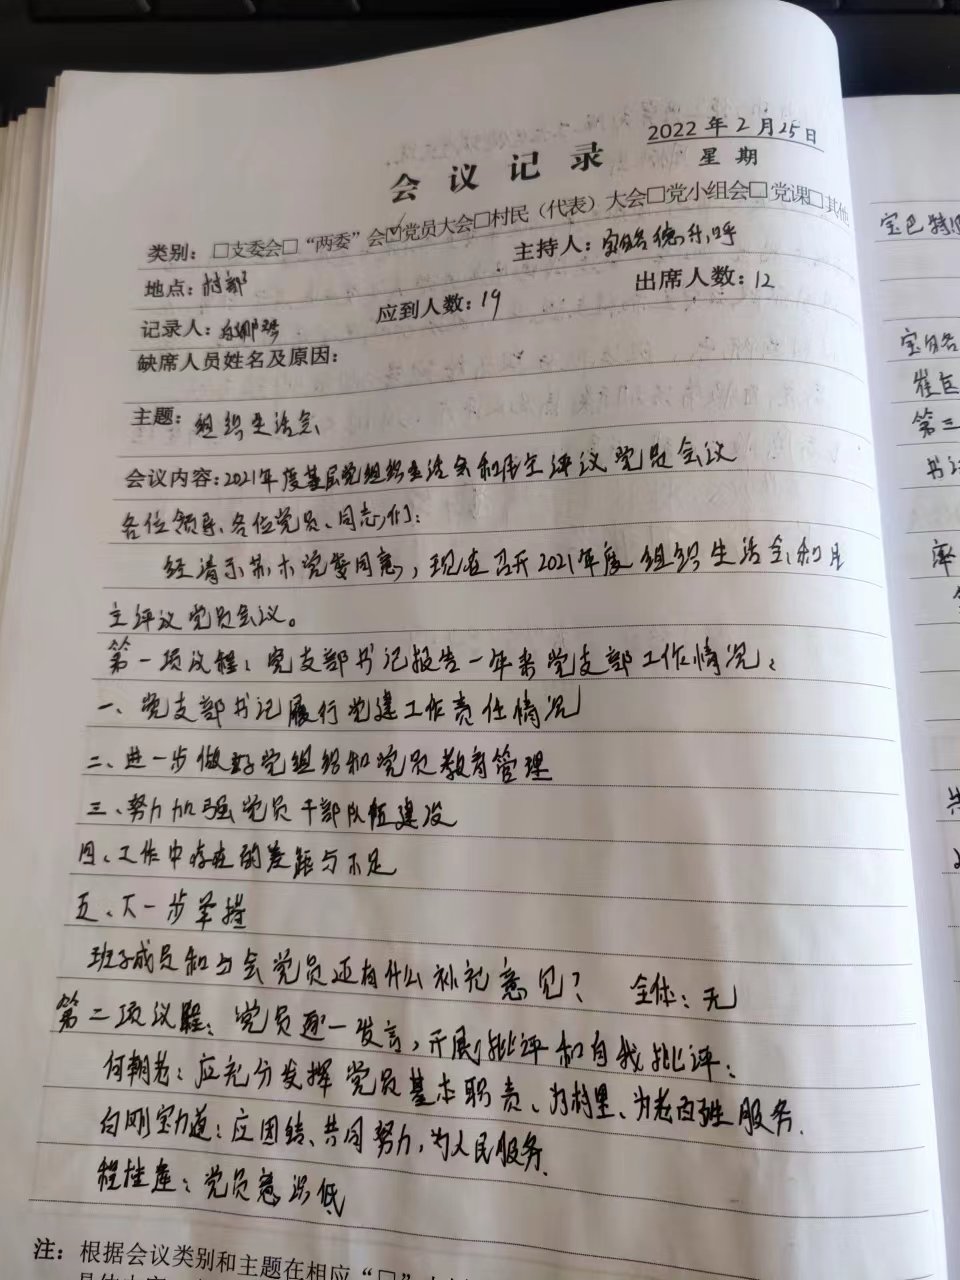 2022年2月25日
会议记录 星期
类别：□支委会□“两委”会☑党员大会□村民（代表）大会□党小组会□党课□其他
地点：村部 主持人：
记录人： 应到人数：19 出席人数：12
缺席人员姓名及原因：
主题：组织生活会
会议内容：2021年度基层党组织生活会和民主评议党员会议
各位领导、各位党员、同志们：
经请示苏木党委同意，现在召开2021年度组织生活会和民
主评议党员会议。
第一项议程：党支部书记报告一年来党支部工作情况：
一、党支部书记履行党建工作责任情况
二、进一步做好党组织和党员教育管理
三、努力加强党员干部队伍建设
四、工作中存在的差距与不足
五、下一步举措
班子成员和与会党员还有什么补充意见？ 全体：无
第二项议程：党员逐一发言，开展批评和自我批评：
何朝老：应充分发挥党员基本职责、为村里、为老百姓服务.
白刚宝力道：应团结、共同努力，为人民服务.
程桂莲：党员意识低
注：根据会议类别和主题在相应“□”
宝巴特
第三
书记